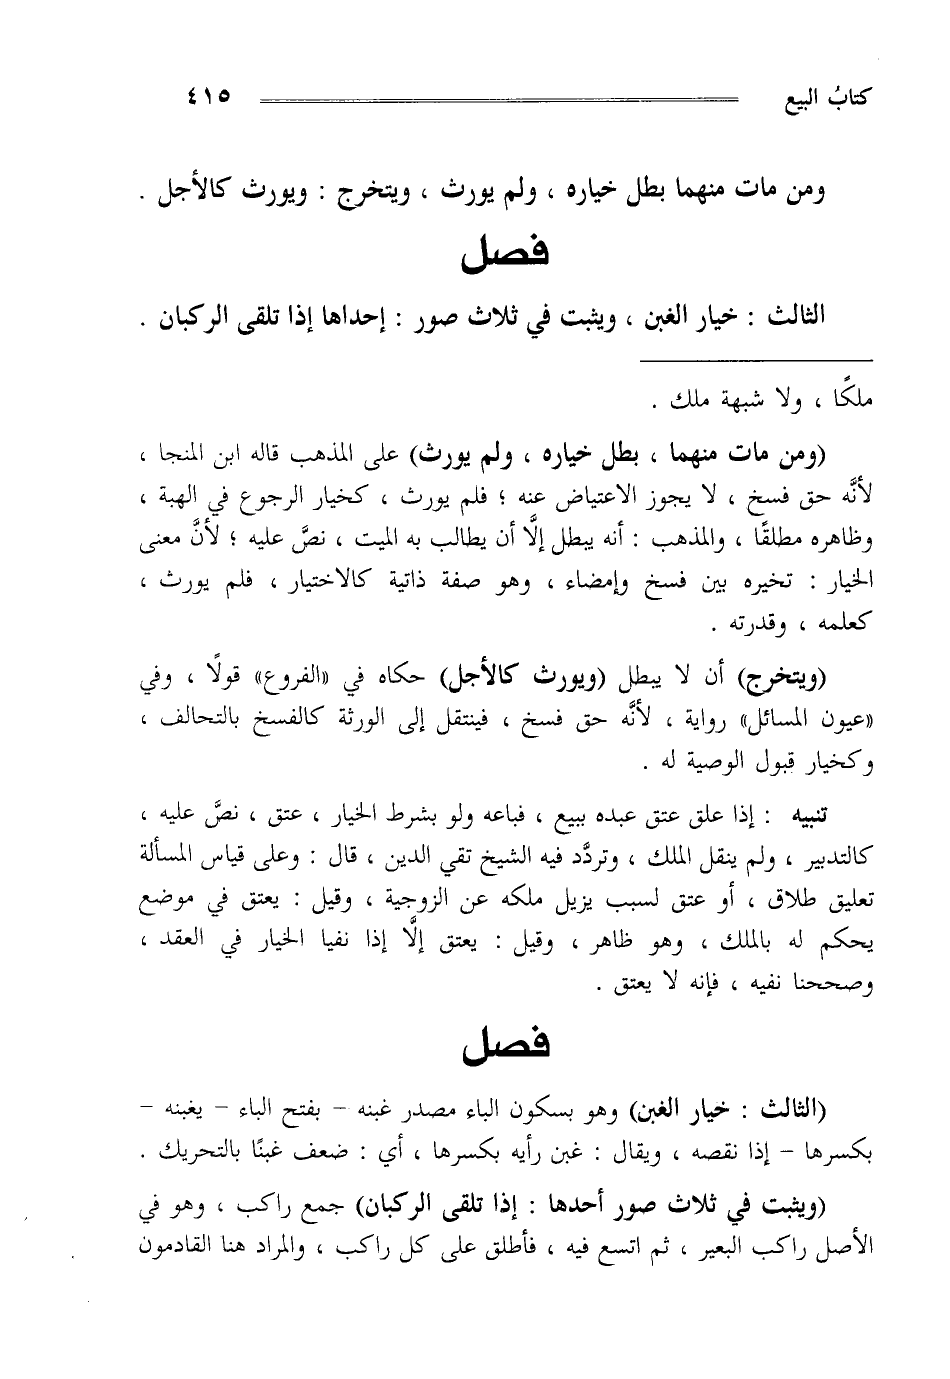 كتابُ البيع ٤١٥
ومن مات منهما بطل خياره ، ولم يورث ، ويتخرج : ويورث كالأجل .
فصل
الثالث : خيار الغبن ، ويثبت في ثلاث صور : إحداها إذا تلقى الركبان .
ملكًا ، ولا شبهة ملك .
(ومن مات منهما ، بطل خياره ، ولم يورث) على المذهب قاله ابن المنجا ،
لأنَّه حق فسخ ، لا يجوز الاعتياض عنه ؛ فلم يورث ، كخيار الرجوع في الهبة ،
وظاهره مطلقًا ، والمذهب : أنه يبطل إلَّا أن يطالب به الميت ، نصَّ عليه ؛ لأنَّ معنى
الخيار : تخيره بين فسخ وإمضاء ، وهو صفة ذاتية كالاختيار ، فلم يورث ،
كعلمه ، وقدرته .
(ويتخرج) أن لا يبطل (ويورث كالأجل) حكاه في «الفروع» قولًا ، وفي
«عيون المسائل» رواية ، لأنَّه حق فسخ ، فينتقل إلى الورثة كالفسخ بالتحالف ،
وكخيار قبول الوصية له .
تنبيه : إذا علق عتق عبده ببيع ، فباعه ولو بشرط الخيار ، عتق ، نصَّ عليه ،
كالتدبير ، ولم ينقل الملك ، وتردَّد فيه الشيخ تقي الدين ، قال : وعلى قياس المسألة
تعليق طلاق ، أو عتق لسبب يزيل ملكه عن الزوجية ، وقيل : يعتق في موضع
يحكم له بالملك ، وهو ظاهر ، وقيل : يعتق إلَّا إذا نفيا الخيار في العقد ،
وصححنا نفيه ، فإنه لا يعتق .
فصل
(الثالث : خيار الغبن) وهو بسكون الباء مصدر غبنه – بفتح الباء – يغبنه –
بكسرها – إذا نقصه ، ويقال : غبن رأيه بكسرها ، أي : ضعف غبنًا بالتحريك .
(ويثبت في ثلاث صور أحدها : إذا تلقى الركبان) جمع راكب ، وهو في
الأصل راكب البعير ، ثم اتسع فيه ، فأطلق على كل راكب ، والمراد هنا القادمون